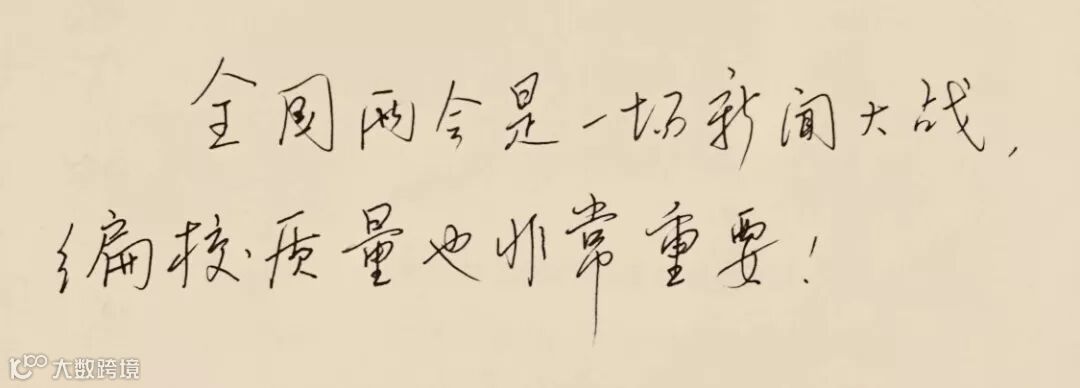 全国两会是一场新闻大战，
编校质量也非常重要！
大数跨境